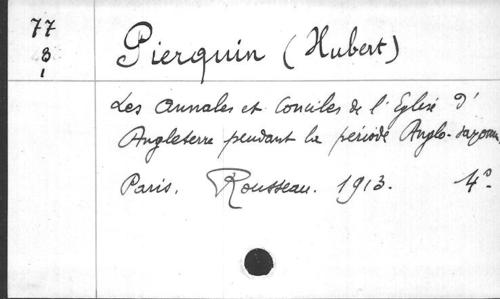 77
8
1
Pierquin (Hubert)
Les Annales et Conciles de l'Eglise d'
Angleterre pendant la période Anglo-saxonne
Paris. Rousseau. 1913. 4°